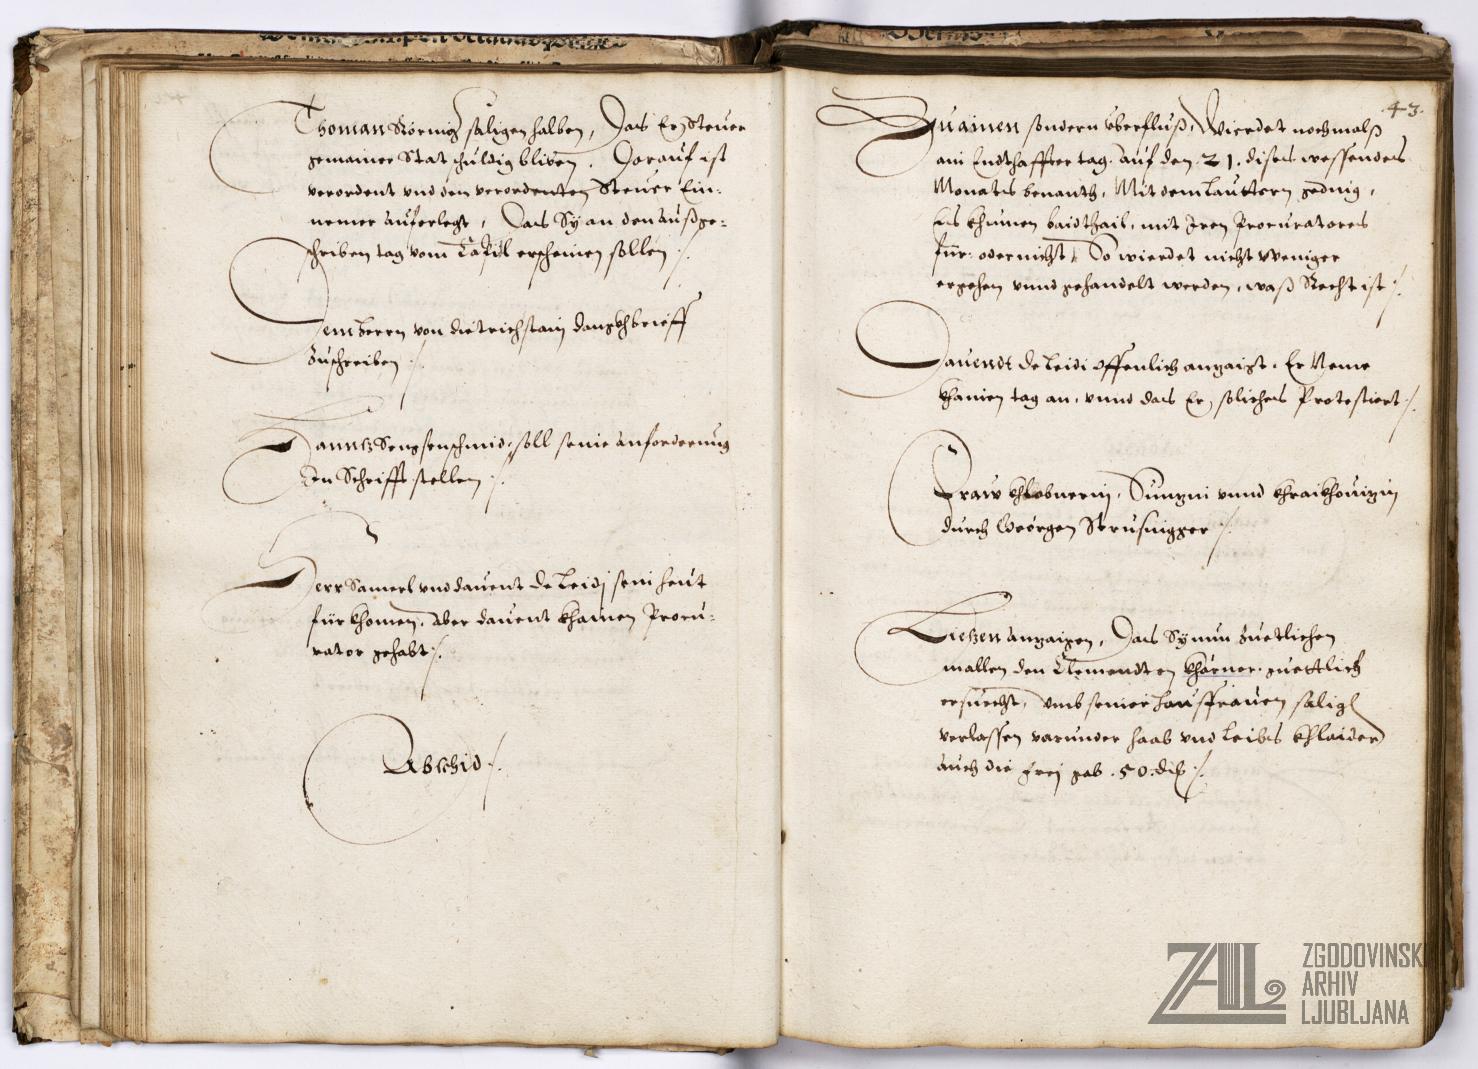 Thoman Körnng saligen halben, Das Er Steuer
gemainer Stat schuldig bliben. Darauf ist
verordent vnd den verordenten Steuer Ein-
nemer auferlegt, Das Sy an den außge-
schriben tag vom erscheinen sollen /.
Dem herrn von dietrichstain dangkhbrieff
Zuschreiben /.
Hanns Sengsenschmid, soll seine anforderung
In Schrifft stellen /.
Herr Samerl vnd dauent de Leidj sein heut
für khomen, aber dauent khainen Procu-
rator gehabt /.
Abschid /.
43.
Zu ainen sondern vberfluß, Wierdet nochmals
ain Endthaffter tag auf den 21. dises wessenden
Monats benanth, Mit dem lauttern geding,
es khumen baid thail, mit Iren Procuratores
für oder nicht, So wierdet nicht weniger
ergehen vnnd gehandelt werden, waß Recht ist /.
Dauendt de Leidi offenlich angaigt. Er Neme
khainen tag an, vnnd das Er solches Protestiert /.
Fraw khlobnerin, vnnd
durch Georgen Strusnigger /.
angaigen, Das Sy nun Zu etlichen
mallen den Clementen khörner guettlich
ersuecht, vmb seiner hausfrauen salig
verlassen varunder haab vnd leibs khlaider
auch die frej gab. 50. /.
ZAL
ZGODOVINSKI
ARHIV
LJUBLJANA